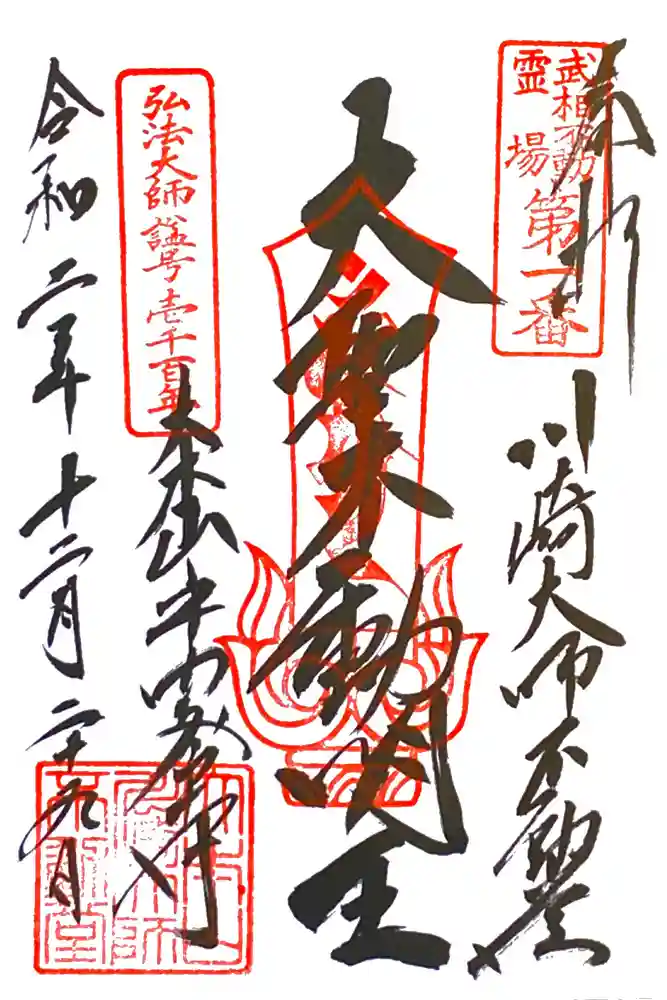 奉拝
武相不動
霊場
第一番
川崎大師不動堂
大聖不動明王
弘法大師諡号壱千百年
大本山平間寺
令和二年十二月二十九日